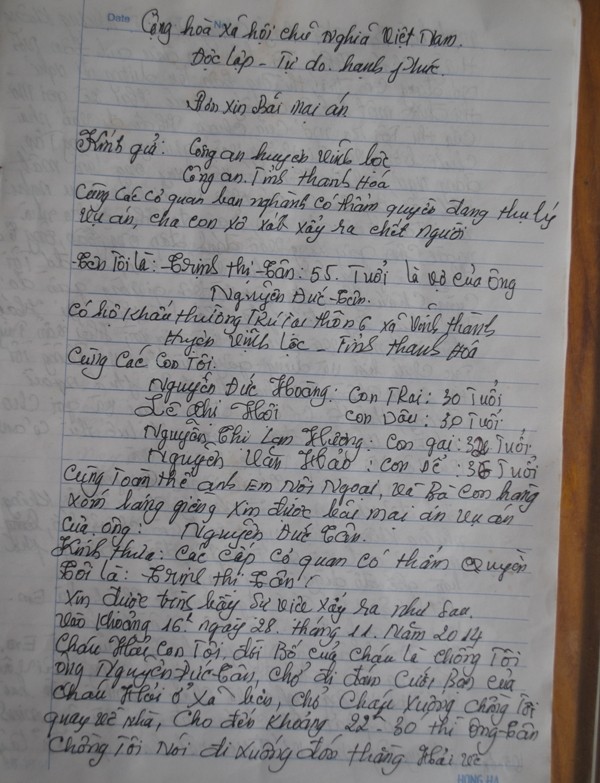 Date No
Cộng hoà xã hội chủ nghĩa Việt Nam.
Độc lập - Tự do. hạnh phúc.
Đơn xin Bãi mại án
Kính gửi: Công an huyện Vĩnh Lộc
Công an Tỉnh Thanh Hoá
Cùng các cơ quan ban nghành có thẩm quyền đang thụ lý
vụ án, cha con xô xát xẩy ra chết người
-Tên Tôi là: -Trịnh thị -Tân: 55. Tuổi là vợ của ông
Nguyễn Đức -Tân.
Có hộ khẩu thường trú tại thôn 6 xã Vĩnh Thành
Huyện Vĩnh Lộc - Tỉnh Thanh Hoá
Cùng các con Tôi.
Nguyễn Đức Hoàng: Con Trai: 30 Tuổi
Lê Thị Hồi Con Dâu: 30 Tuổi
Nguyễn Thị Lan Hương: Con gái: Tuổi.
Nguyễn Văn Hảo: Con rể: Tuổi
Cùng Toàn thể anh Em Nội Ngoại, và Bà Con hàng
xóm láng giềng xin được bãi mại án vụ án
của ông: Nguyễn Đức Tân.
Kính thưa: Các cấp cơ quan có thẩm Quyền
Tôi là: -Trịnh thị Tân!
xin được trình bầy sự việc xẩy ra như sau.
vào khoảng 16h ngày 28. tháng 11. Năm 2014
Cháu Hải con Tôi, Bố của cháu là chồng Tôi
ông Nguyễn Đức -Tân, chở đi đám cưới, Bạn của
cháu Hải ở xã bên, chở cháu xuống chồng Tôi
quay về nhà, cho đến khoảng 22h-30 thì ông -Tân
chồng Tôi nói đi xuống đón thằng Hải về
HONG HA